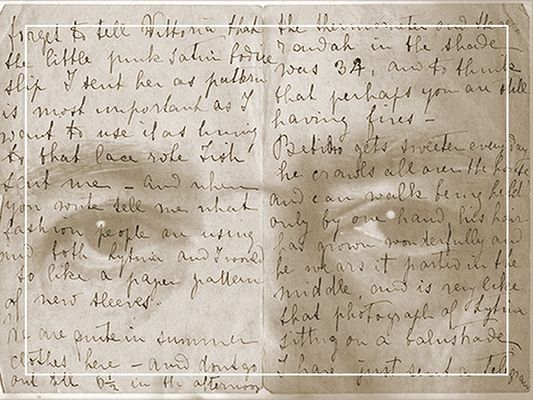 forget to tell Vittoria that
the little pink satin bodice
slip I sent her as pattern
is most important as I
want to use it as lining
to that lace robe Tish
sent me - and when
you write tell me what
fashion people are using
and both Lytria and I would
so like a paper pattern
of new sleeves.
We are quite in summer
clothes here - and dont go
out till 6½ in the afternoon
the thermometer and the ve-
randah in the shade
was 34, and to think
that perhaps you are still
having fires -
gets sweeter every day
he crawls all over the house
and can walk being held
only by one hand his hair
has grown wonderfully and
he wears it parted in the
middle and is very like
that photograph of
sitting on a balustrade
I have just sent a telegram